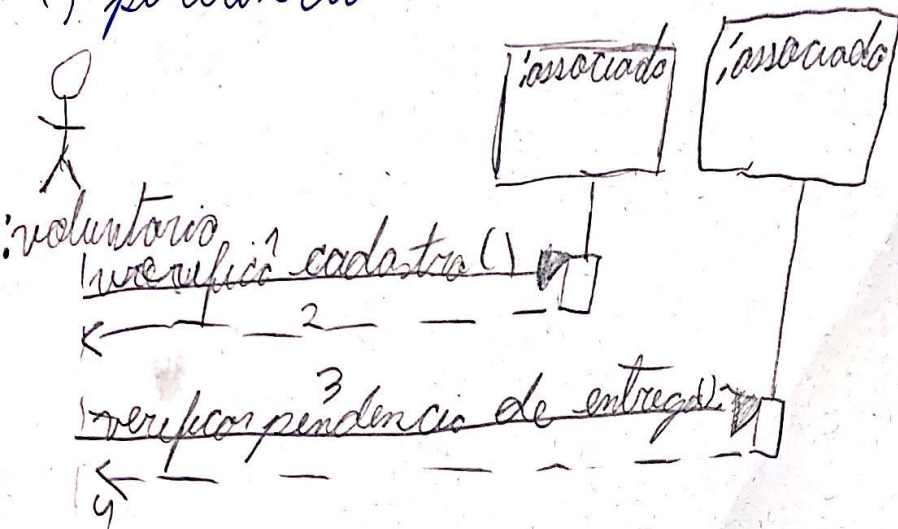 :associado :associado
:voluntario
1
verificar cadastro()
2
3
verificar pendencia de entrega()
4